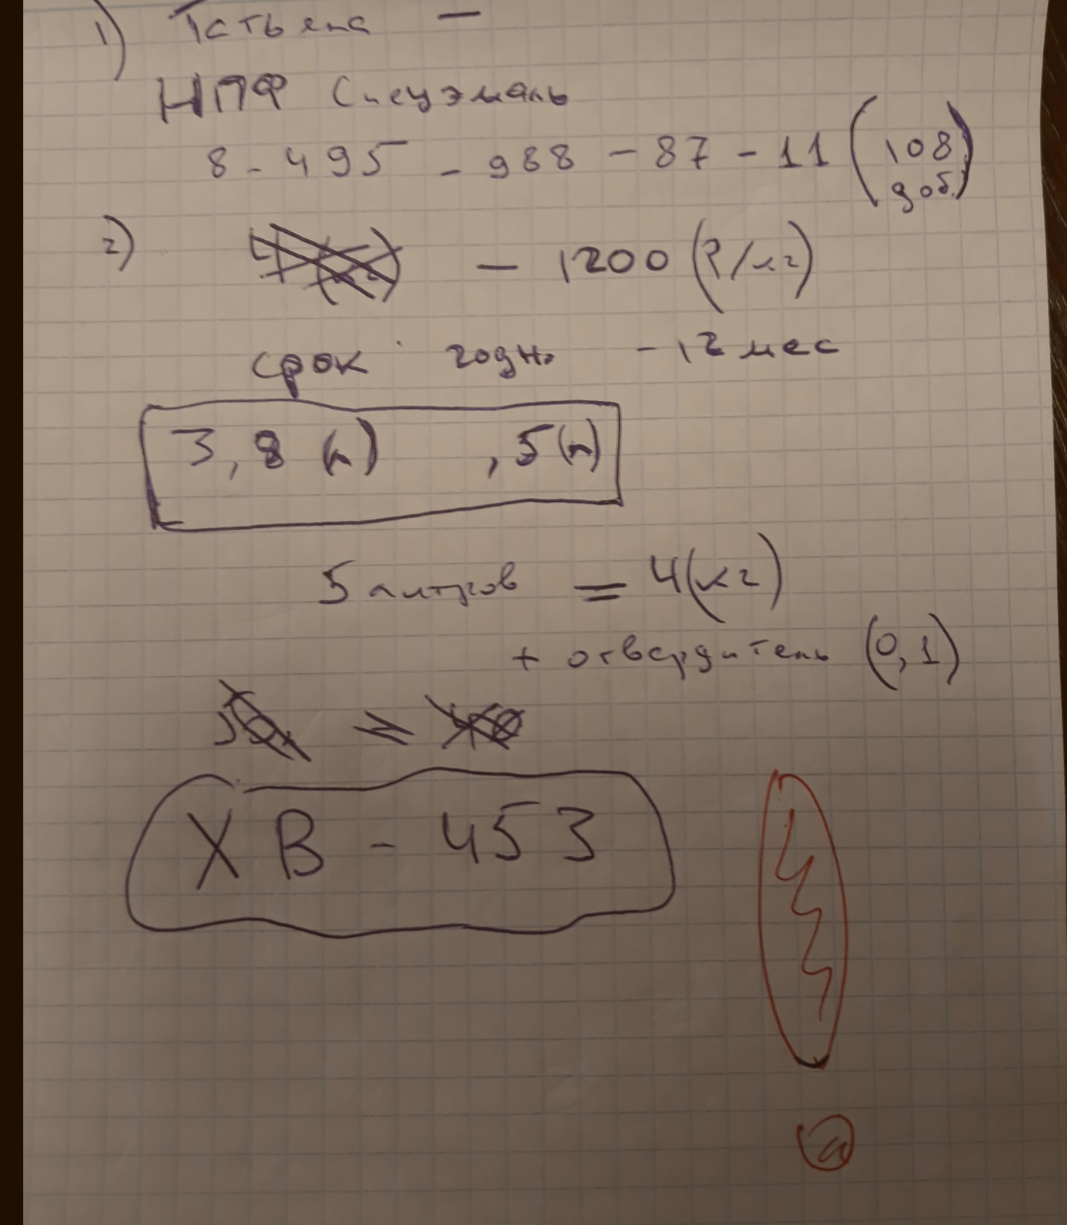 1) Татьяна —
НПФ Спецэмаль
8-495-988-87-11 (108
доб.)
2) — 1200 (₽/кг)
срок годн. - 12 мес
3,8 (л) , 5(л)
5 литров = 4(кг)
+ отвердитель (0,1)
ХВ-453